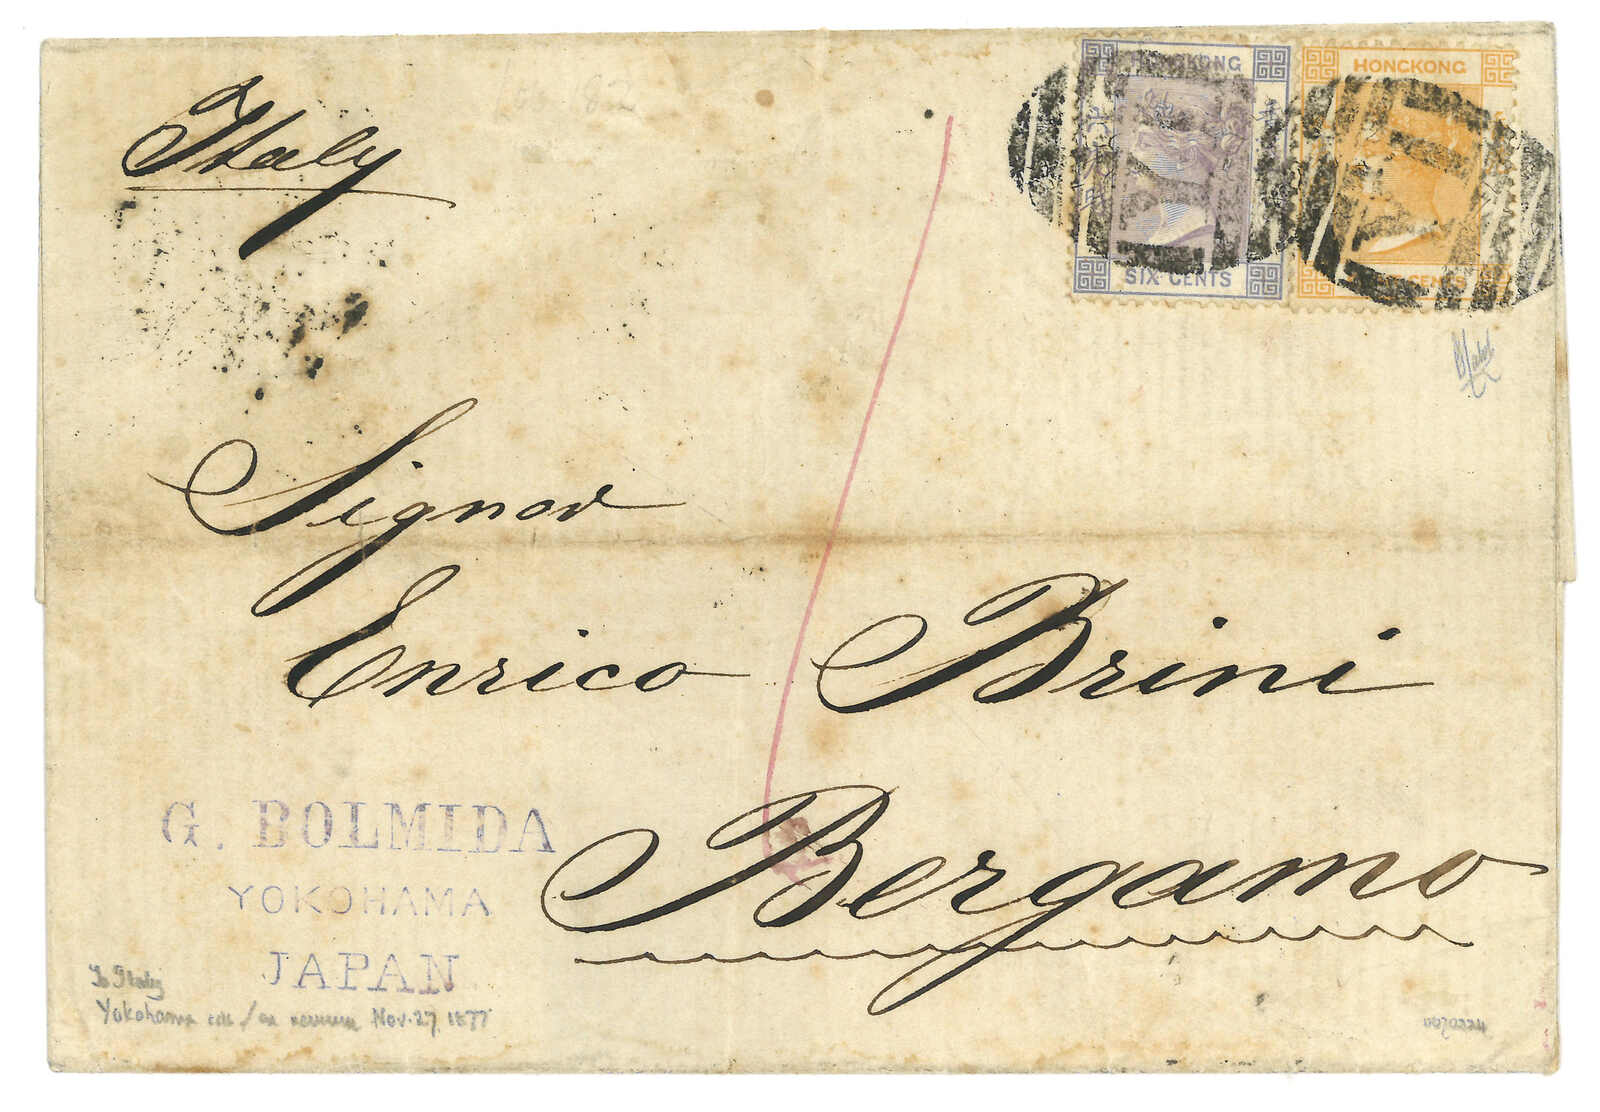 HONGKONG
SIX CENTS
HONGKONG
CENTS
Italy
Signor
Enrico Brini
Bergamo
G. BOLMIDA
YOKOHAMA
JAPAN
To Italy
Yokohama cds / on reverse Nov. 27, 1877